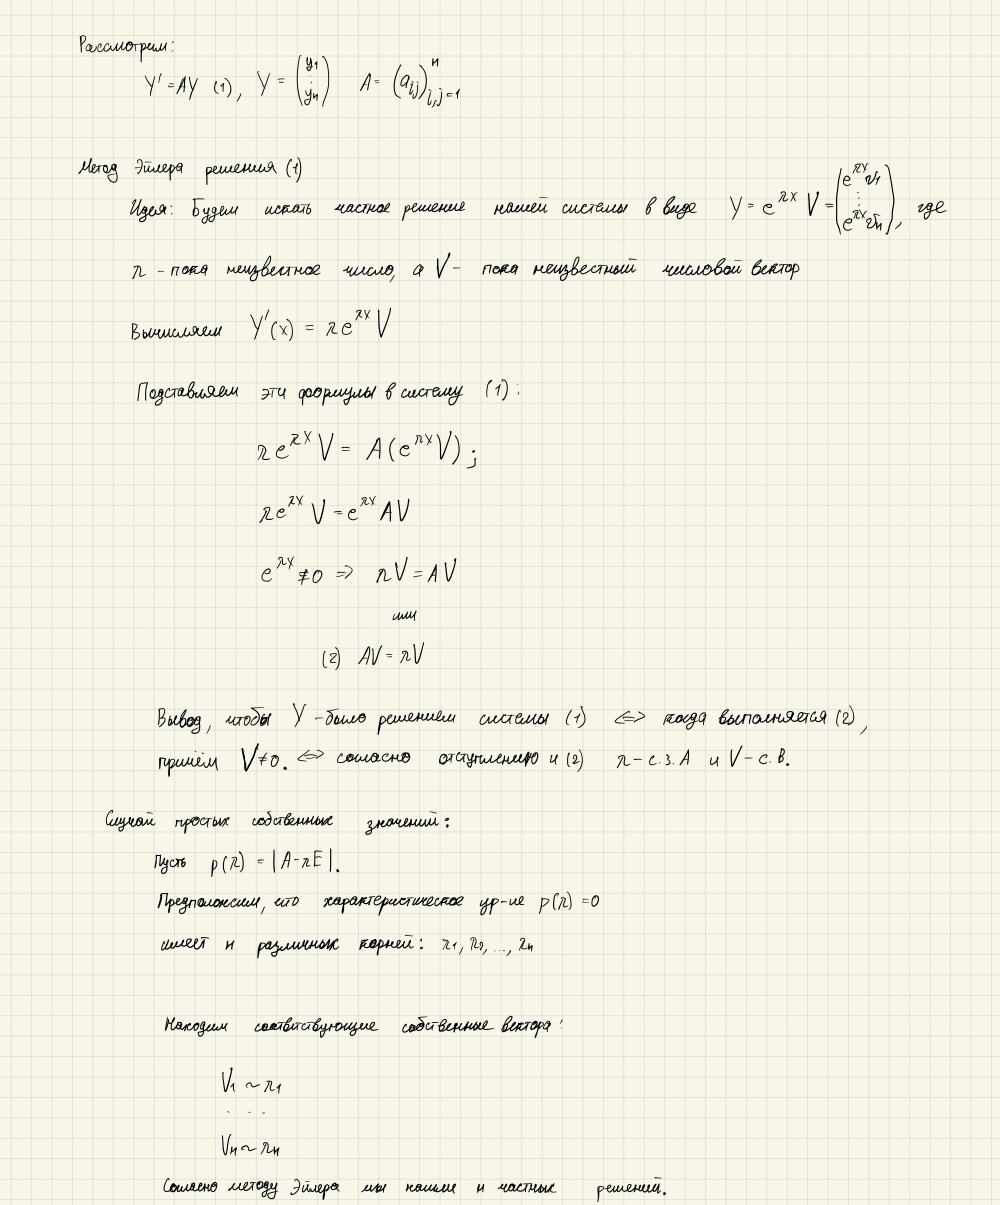 Рассмотрим:
Y' = AY (1), Y = (y1 ⋮ yn) A = (aij)ⁿi,j=1
Метод Эйлера решения (1)
Идея: Будем искать частное решение нашей системы в виде Y = e^{λx} V = (e^{λx}v1 ⋮ e^{λx}vn), где
λ - пока неизвестное число, а V - пока неизвестный числовой вектор
Вычисляем Y'(x) = λe^{λx} V
Подставляем эти формулы в систему (1):
λe^{λx} V = A(e^{λx} V);
λe^{λx} V = e^{λx} AV
e^{λx} ≠ 0 ⇒ λV = AV
или
(2) AV = λV
Вывод, чтобы Y - было решением системы (1) ⇔ когда выполняется (2),
причём V ≠ 0. ⇔ согласно отступлению и (2) λ - с.з. A и V - с.в.
Случай простых собственных значений:
Пусть p(λ) = |A - λE|.
Предположим, что характеристическое ур-ие p(λ) = 0
имеет n различных корней: λ1, λ2, ..., λn
Находим соответствующие собственные вектора:
V1 ~ λ1
. . .
Vn ~ λn
Согласно методу Эйлера мы нашли n частных решений.